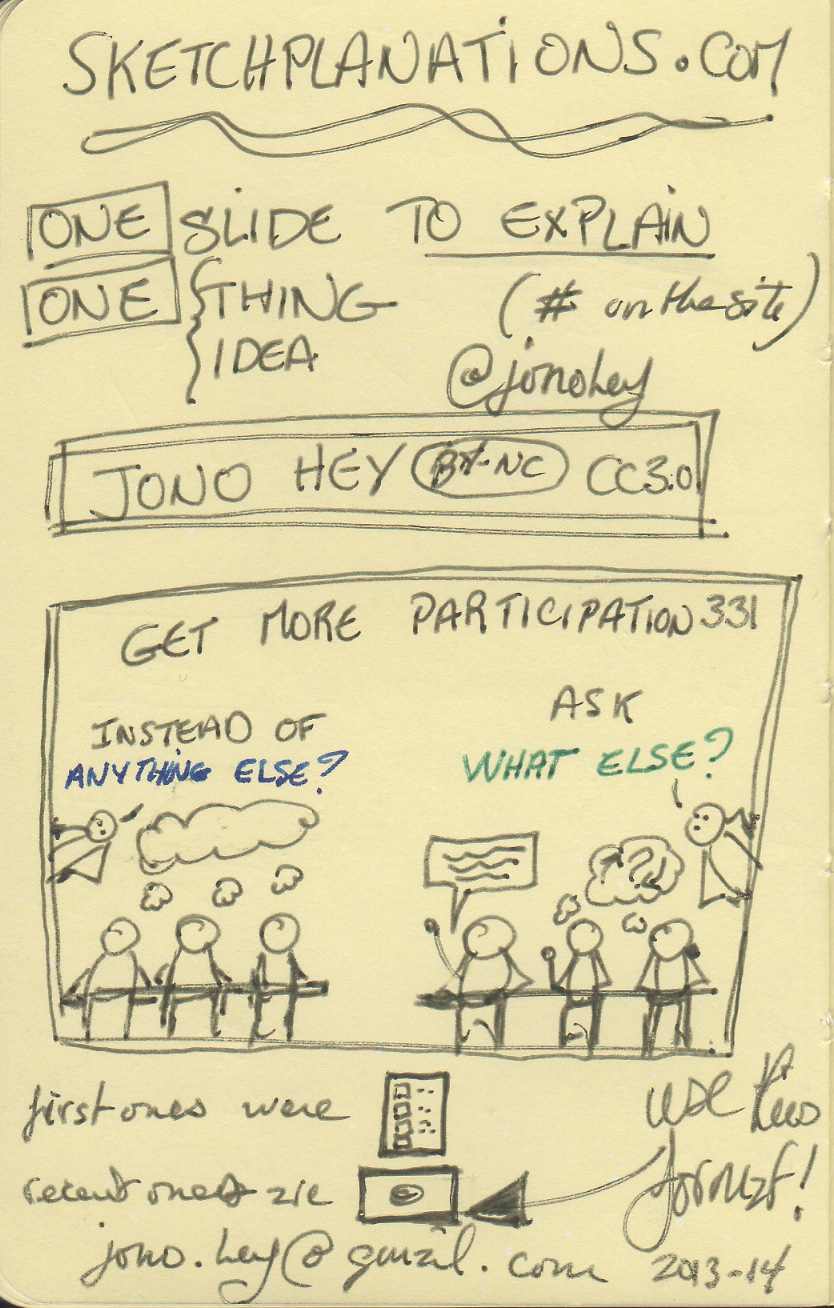 SKETCHPLANATIONS.COM
ONE SLIDE TO EXPLAIN
ONE THING (# on the site)
IDEA
@jonohey
JONO HEY BY-NC CC3.0
GET MORE PARTICIPATION 331
INSTEAD OF
ANYTHING ELSE?
ASK
WHAT ELSE?
?
first ones were
use this
recent ones are
format!
jono.hey@gmail.com 2013-14